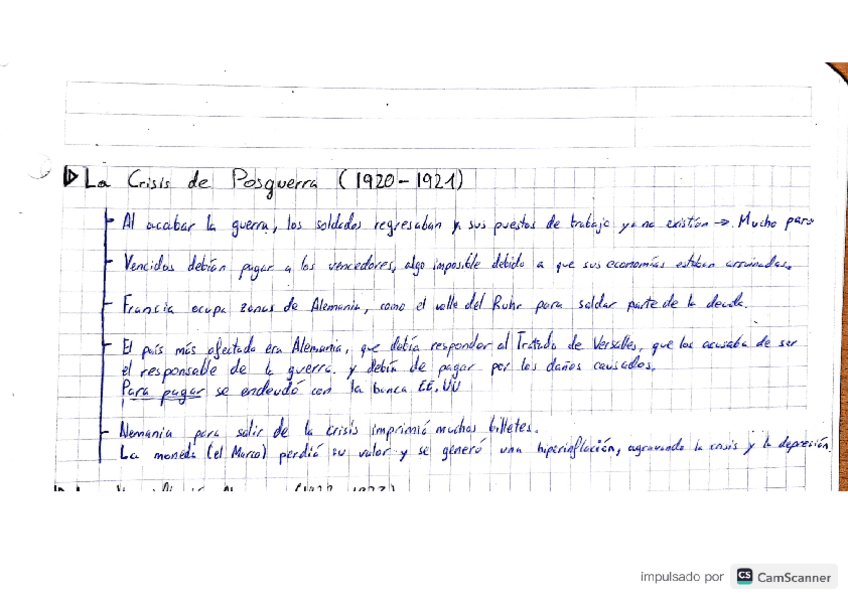 La Crisis de Posguerra (1920-1921)
Al acabar la guerra, los soldados regresaban y sus puestos de trabajo ya no existían → Mucho paro
Vencidos debían pagar a los vencedores, algo imposible debido a que sus economías estaban arruinadas.
Francia ocupa zonas de Alemania, como el valle del Ruhr para saldar parte de la deuda.
El país más afectado era Alemania, que debía responder al Tratado de Versalles, que los acusaba de ser
el responsable de la guerra y debía de pagar por los daños causados.
Para pagar se endeudó con la banca EE.UU
Alemania para salir de la crisis imprimió muchos billetes.
La moneda (el Marco) perdió su valor y se generó una hiperinflación, agravando la crisis y la depresión.
impulsado por CS CamScanner